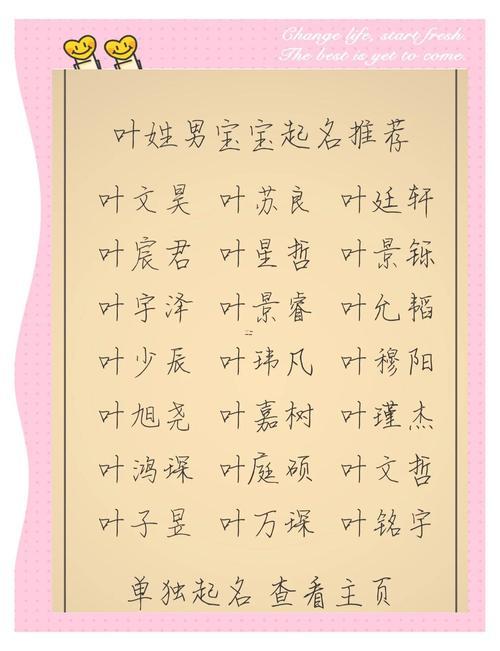 Change life, start fresh.
The best is yet to come.
叶姓男宝宝起名推荐
叶文昊 叶苏良 叶廷轩
叶宸君 叶星哲 叶景铄
叶宇泽 叶景睿 叶允韬
叶少辰 叶玮凡 叶穆阳
叶旭尧 叶嘉树 叶瑾杰
叶鸿琛 叶庭硕 叶文哲
叶子昱 叶万琛 叶铭宇
单独起名 查看主页